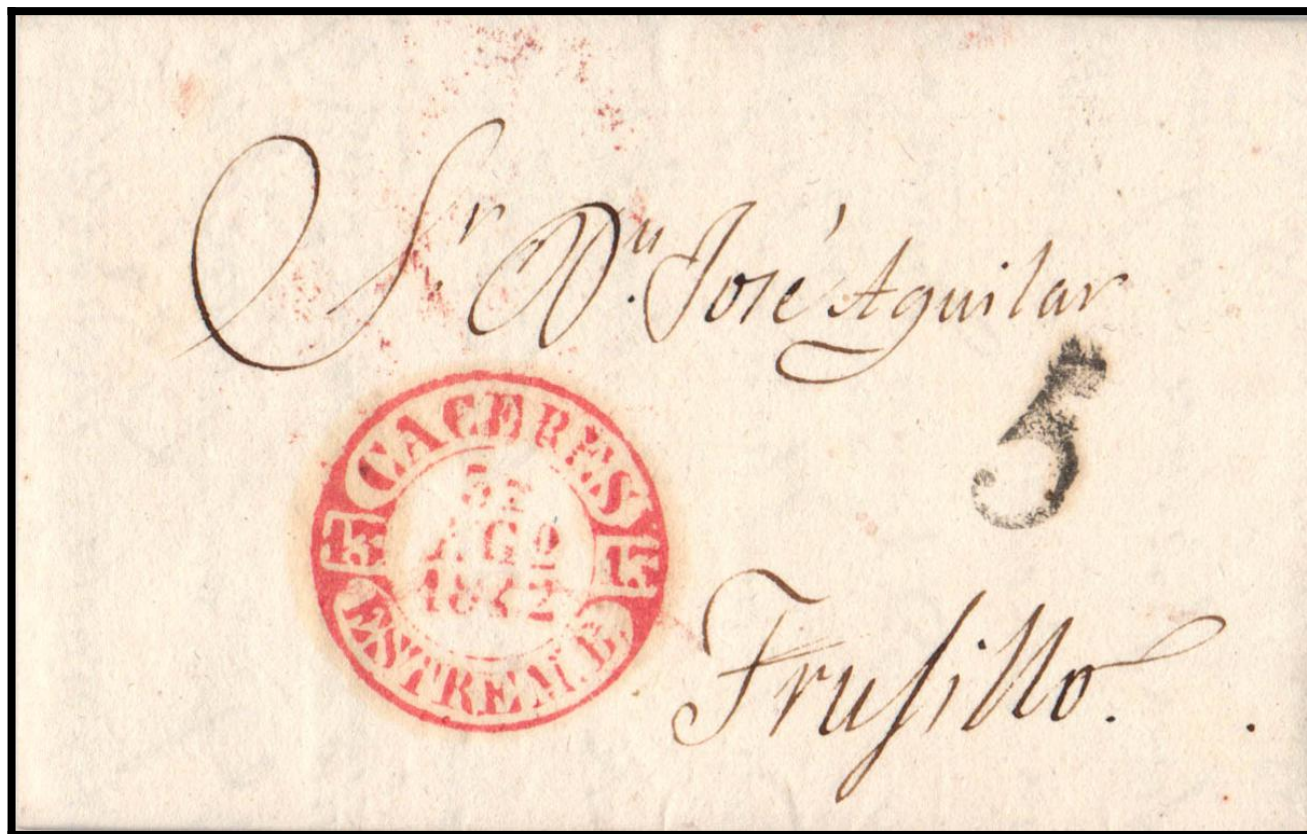 Sr. Dn. José Aguilar
5
CACERES
31
AGO
1842
13 13
ESTREM. B.
Trujillo.